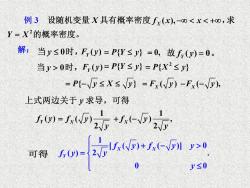 例 3 设随机变量 X 具有概率密度 f_X(x), -∞ < x < +∞, 求
Y = X² 的概率密度。
解: 当 y ≤ 0 时, F_Y(y) = P{Y ≤ y} = 0, 故 f_Y(y) = 0。
当 y > 0 时, F_Y(y) = P{Y ≤ y} = P{X² ≤ y}
= P{-√y ≤ X ≤ √y} = F_X(√y) - F_X(-√y),
上式两边关于 y 求导，可得
f_Y(y) = f_X(√y) 1/(2√y) + f_X(-√y) 1/(2√y),
可得 f_Y(y) = { 1/(2√y) [f_X(√y) + f_X(-√y)] y > 0
0 y ≤ 0